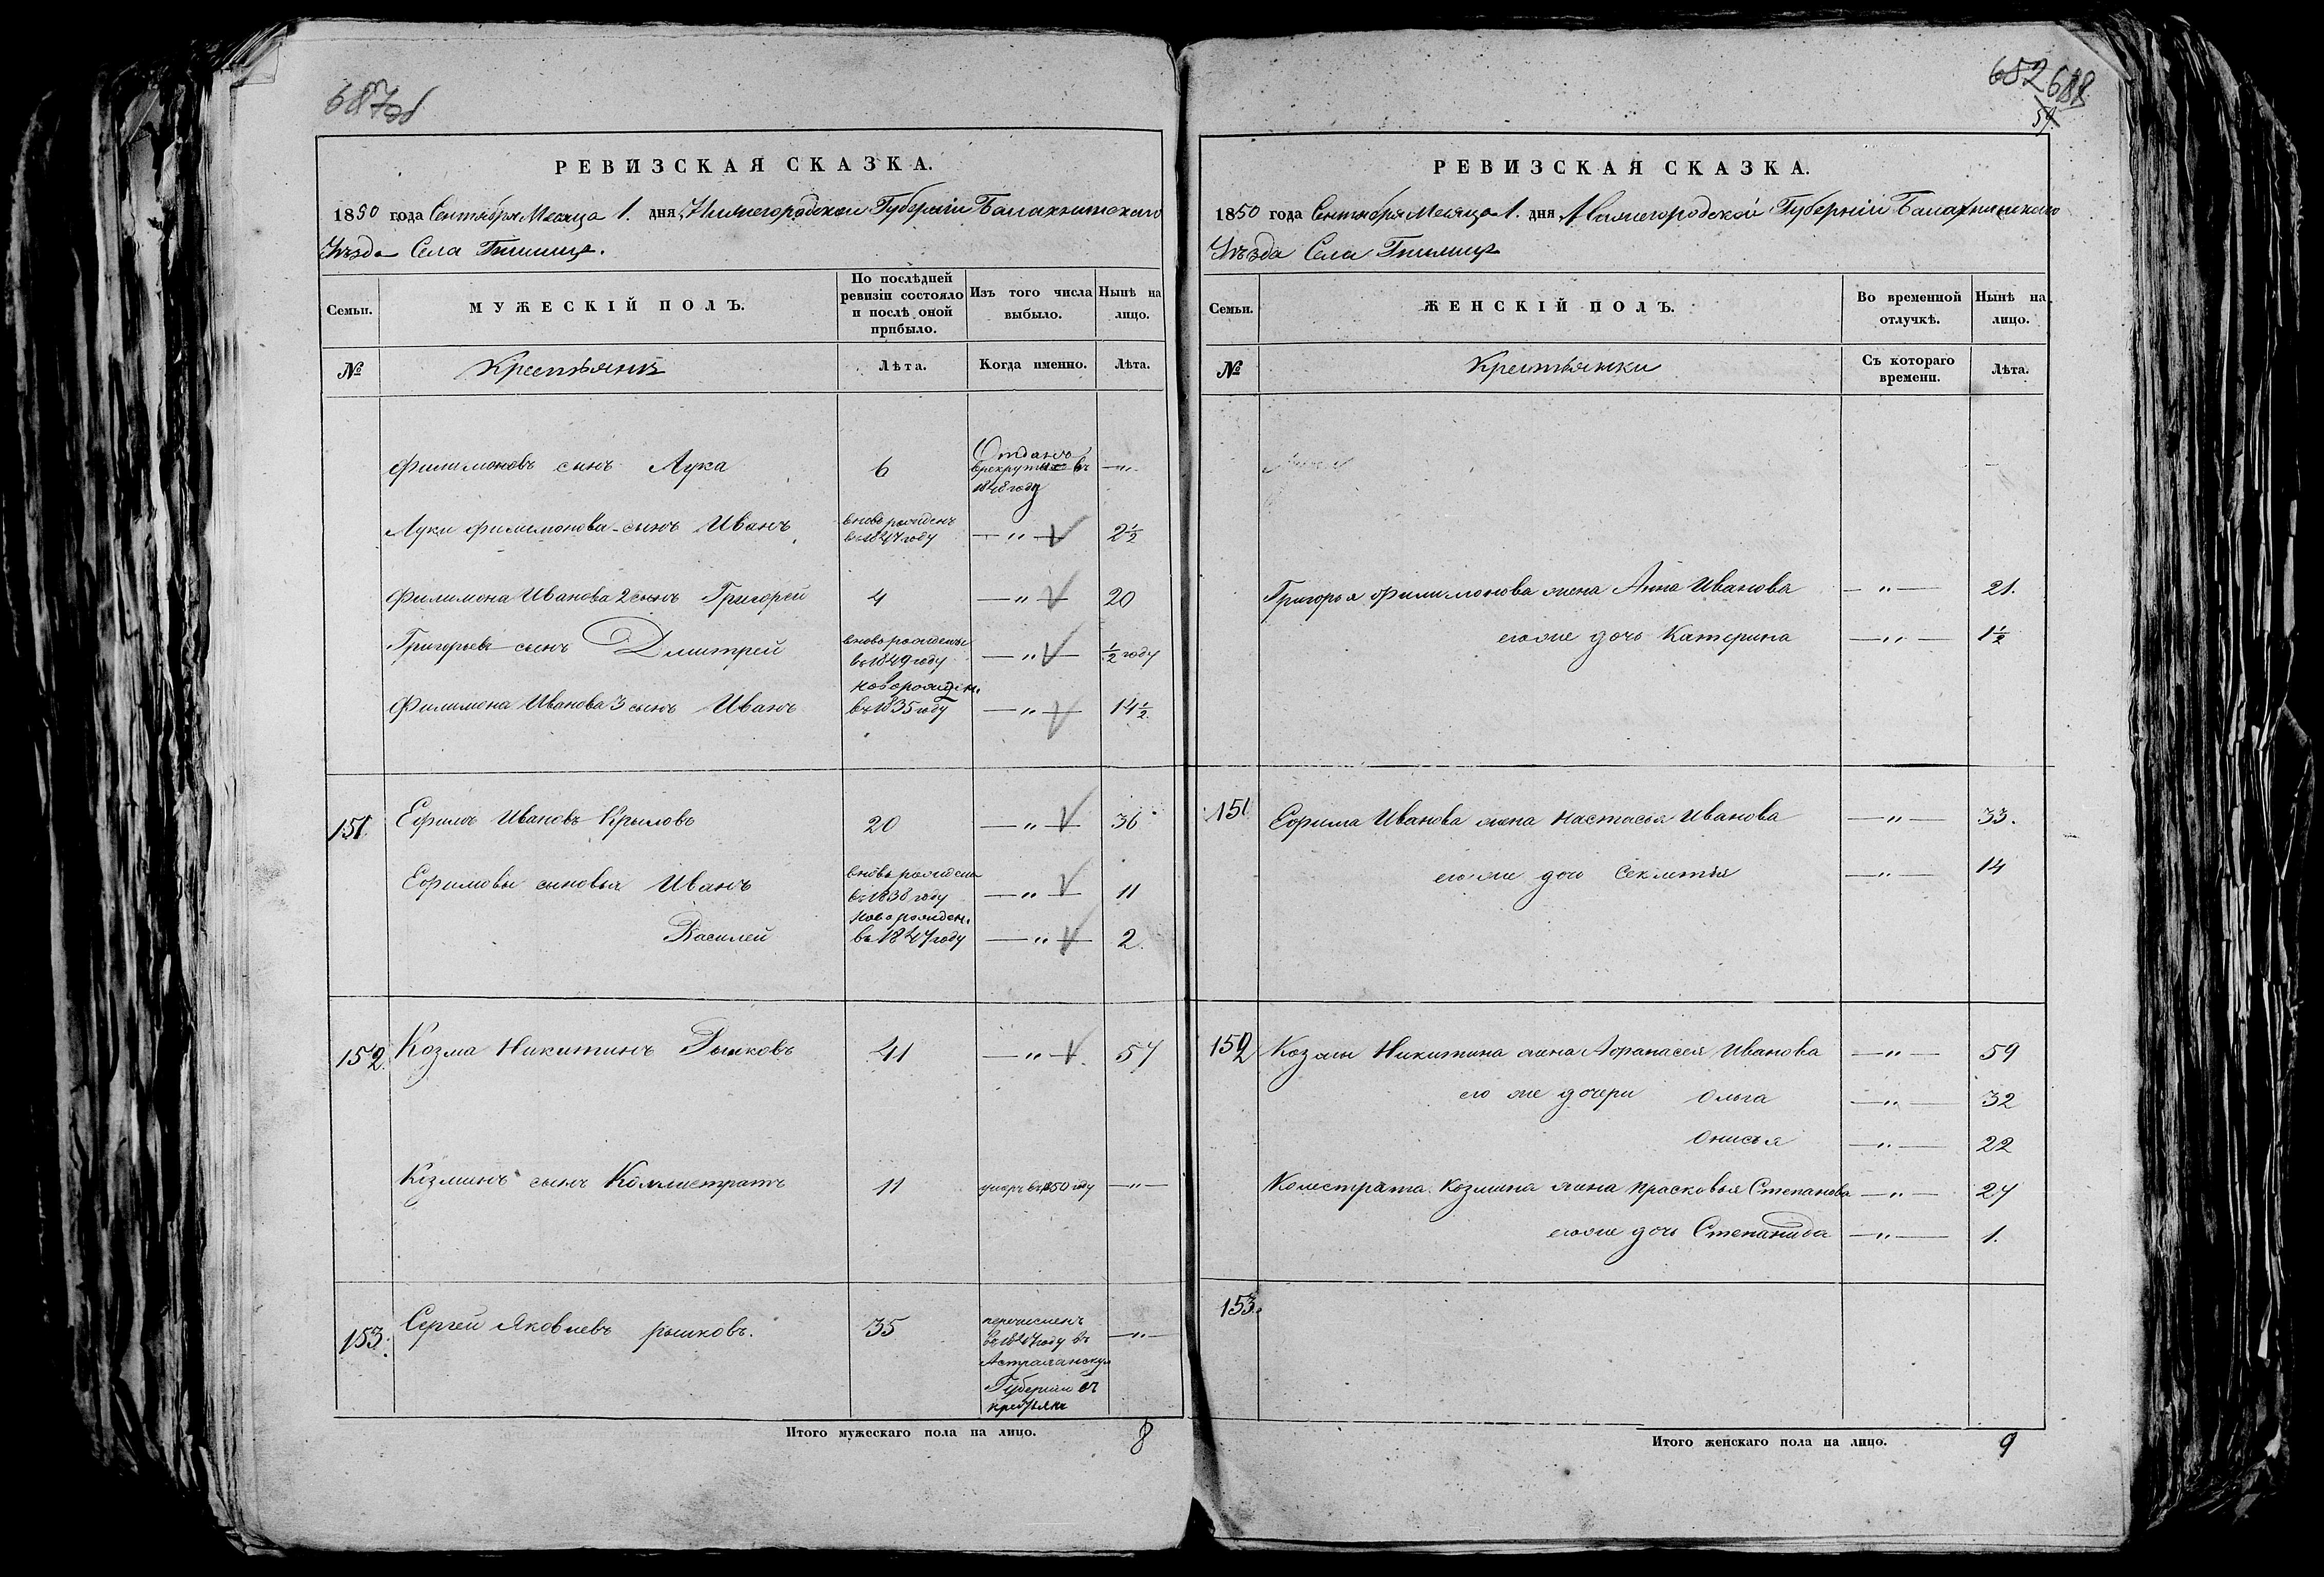 687об
РЕВИЗСКАЯ СКАЗКА.
1850 года Сентября Месяца 1. дня Нижегородской Губерніи Балахнинскаго
Уѣзда Села
Семьи.
МУЖЕСКІЙ ПОЛЪ.
По послѣдней ревизіи состояло и послѣ оной прибыло.
Изъ того числа выбыло.
Нынѣ на лицо.
№
Крестьянъ
Лѣта.
Когда именно.
Лѣта.
Филимоновъ сынъ Лука 6 Отданъ в рекруты въ 1848 году —„—
Луки Филимонова сынъ Иванъ вновь рожденъ въ 1847 году —„— 2½
Филимона Иванова 2 сынъ Григорей 4 —„— 20
Григорьевъ сынъ Дмитрей вновь рожденъ въ 1849 году —„— ½ году
Филимона Иванова 3 сынъ Иванъ новорожден. въ 1835 году —„— 14½
151. Ефимъ Ивановъ Крыловъ 20 —„— 36
Ефимовы сыновья Иванъ вновь рожденъ въ 1838 году —„— 11
Василей новорожден. въ 1847 году —„— 2.
152. Козма Никитинъ Рыжковъ 41 —„— 57
Козминъ сынъ Коллистратъ 11 умеръ въ 1850 году —„—
153. Сергей Яковлевъ рыжковъ. 35 перечисленъ въ 1847 году въ Астраханскую Губернію въ крестьяне —„—
Итого мужескаго пола на лицо. 8
682 688
59.
РЕВИЗСКАЯ СКАЗКА.
1850 года Сентября Месяца 1. дня Нижегородской Губерніи Балахнинскаго
Уѣзда Села
Семьи.
ЖЕНСКІЙ ПОЛЪ.
Во временной отлучкѣ.
Нынѣ на лицо.
№
Крестьянки
Съ котораго времени.
Лѣта.
Григорья Филимонова жена Анна Иванова —„— 21.
его же дочь Катерина —„— 1½
151 Ефима Иванова жена Настасья Иванова —„— 33.
его же дочь Секлетья —„— 14
152 Козмы Никитина жена Афанасея Иванова —„— 59
его же дочери Ольга —„— 32
Онисья —„— 22
Колистрата Козмина жена Прасковья Степанова —„— 27
его же дочь Степанида —„— 1.
153.
Итого женскаго пола на лицо. 9